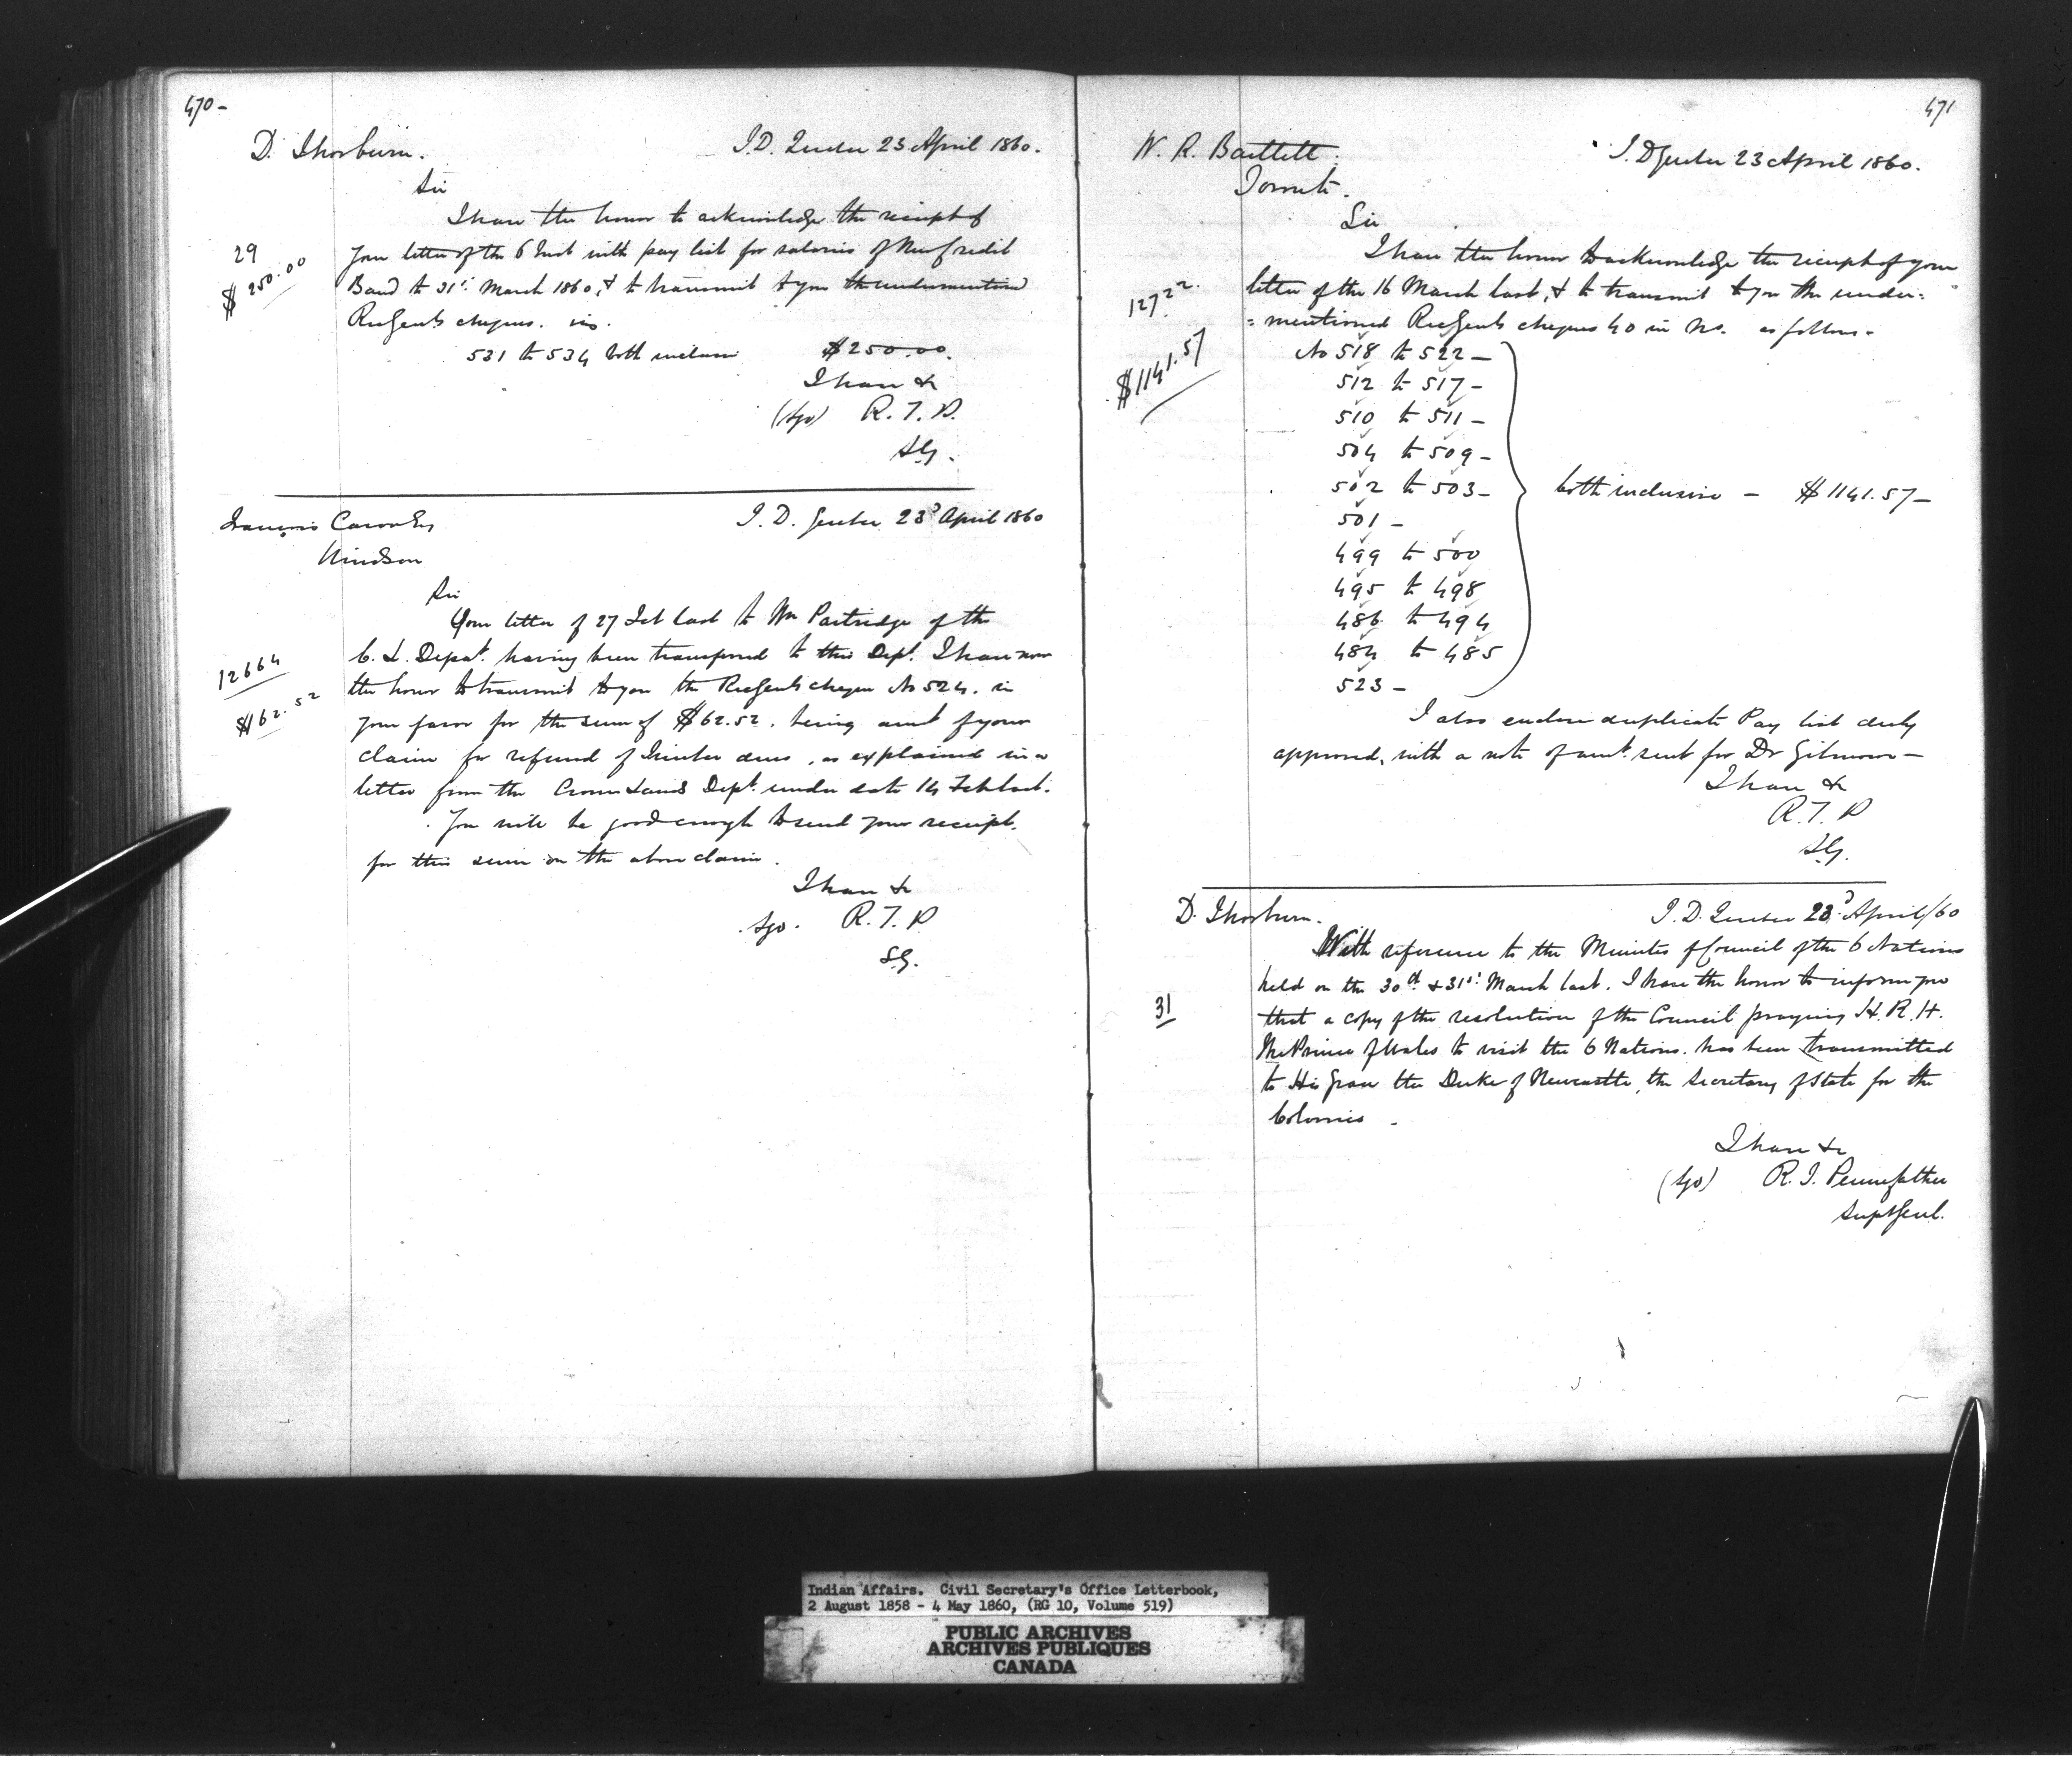 470-
D. Thorburn.
I.D. Quebec 23 April 1860.
Sir
I have the honor to acknowledge the receipt of
29
$250.00
your letter of the 6 Inst with pay list for salaries of New Credit
Band to 31st March 1860, & to transmit to you the undermentioned
RecGenls cheques. viz.
531 to 534 both inclusive $250.00.
I have &c
(Sgd) R. T. P.
SG.
François Caron Esq
I. D. Quebec 23d April 1860
Windsor
Sir
Your letter of 27 Feb last to Mr Partridge of the
12664
$62.52
C. L. Depart. having been transferred to this Dept. I have now
the honor to transmit to you the RecGenls cheque No 524. in
your favor for the sum of $62.52. being amt of your
claim for refund of Timber dues, as explained in a
letter from the Crown Lands Dept. under date 14 Feb last.
You will be good enough to send your receipt.
for this sum on the above claim.
I have &c
Sgd. R. T. P
S.G.
471
W. R. Bartlett.
I. D Quebec 23 April 1860.
Toronto.
Sir
I have the honor to acknowledge the receipt of your
12722.
$1141.57
letter of the 16 March last, & to transmit to you the under=
=mentioned RecGenls cheques 40 in No. as follows-
No 518 to 522-
512 to 517-
510 to 511-
504 to 509-
502 to 503- both inclusive - $1141.57-
501-
499 to 500
495 to 498
486 to 494
484 to 485
523-
I also enclose duplicate Pay list duly
approved, with a note of amt. sent for Dr Gilmour-
I have &c
R. T. P
S.G.
D. Thorburn.
I. D. Quebec 23d April/60
With reference to the Minutes of Council of the 6 Nations
held on the 30th & 31st March last. I have the honor to inform you
31
that a copy of the resolution of the Council praying H. R. H.
The Prince of Wales to visit the 6 Nations. has been transmitted
to His Grace the Duke of Newcastle, the Secretary of State for the
Colonies.
I have &c
(Sgd) R. T. Pennefather
SuptGenl.
Indian Affairs. Civil Secretary's Office Letterbook,
2 August 1858 - 4 May 1860, (RG 10, Volume 519)
PUBLIC ARCHIVES
ARCHIVES PUBLIQUES
CANADA